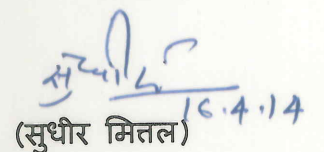 सुधीर
16.4.14
(सुधीर मित्तल)